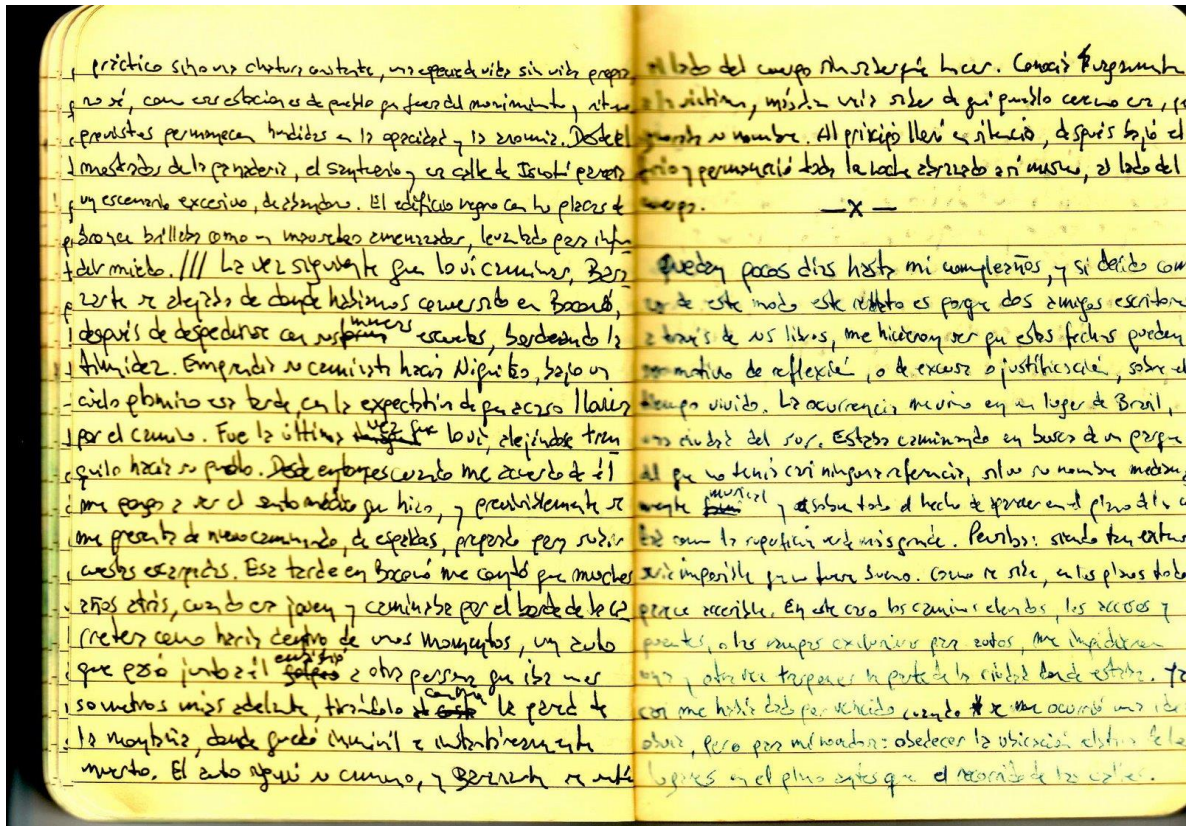 práctico sino una chatura constante, una especie de vida sin vida propia
no sé, como esas estaciones de pueblo que fuera del movimiento y
previstas permanecen hundidas en la opacidad y la anomia. Desde el
mostrador de la panadería, el santuario y su calle de Isnotú parecía
un escenario excesivo, de abandono. El edificio negro con las placas de
bronce brillaba como un mausoleo amenazador, levantado para infun
dir miedo. /// La vez siguiente que lo vi caminar, Barr
zarte se alejaba de donde habíamos conversado en Boconó,
después de despedirse con sus maneras escuetas, bordeando la
timidez. Emprendía su caminata hacia Niquitao, bajo un
cielo plomizo esa tarde, con la expectativa de que acaso llovier
por el camino. Fue la última vez que lo vi, alejándose tran
quilo hacia su pueblo. Desde entonces cuando me acuerdo de él
me pongo a ver el santo médico que hizo, y previsiblemente se
me presenta de nuevo caminando, de espaldas, preparado para subir
cuestas escarpadas. Esa tarde en Boconó me contó que muchos
años atrás, cuando era joven y caminaba por el borde de la ca
rretera como haría dentro de unos momentos, un auto
que pasó junto a él embistió a otra persona que iba unos
50 metros más adelante, tirándolo contra la pared de
la montaña, donde quedó inmóvil e instantáneamente
muerto. El auto siguió su camino, y
al lado del cuerpo sin saber qué hacer. Conocía
a la víctima, más bien solía saber de qué pueblo cercano era,
su nombre. Al principio lloró en silencio, después bajó el
frío y permaneció toda la noche abrazado a sí mismo, al lado del
cuerpo. — X —
Quedan pocos días hasta mi cumpleaños, y si decido com
de este modo este relato es porque dos amigos escritores
a través de sus libros, me hicieron ver que estas fechas pueden
ser motivo de reflexión, o de excusa o justificación, sobre el
tiempo vivido. La ocurrencia me vino en un lugar de Brasil,
una ciudad del sur. Estaba caminando en busca de un parque
del que no tenía casi ninguna referencia, salvo su nombre mediana
mente musical y sobre todo el hecho de aparecer en el plano de la
como la superficie verde más grande. Pensaba: siendo tan extenso
sería imposible que no fuera bueno. Como se sabe, en los planos todo
parece accesible. En este caso los caminos elevados, los accesos y
puentes, o las rampas exclusivas para autos, me impidieron
una y otra vez trasponer la parte de la ciudad donde estaba. Ya
casi me había dado por vencido cuando se me ocurrió una idea
obvia, pero para mí novedosa: obedecer la ubicación de los
lugares en el plano antes que el recorrido de las calles.